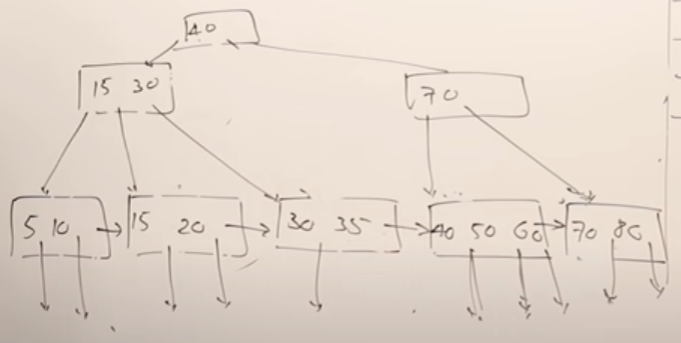 40
15 30
70
5 10 15 20 30 35 40 50 60 70 80